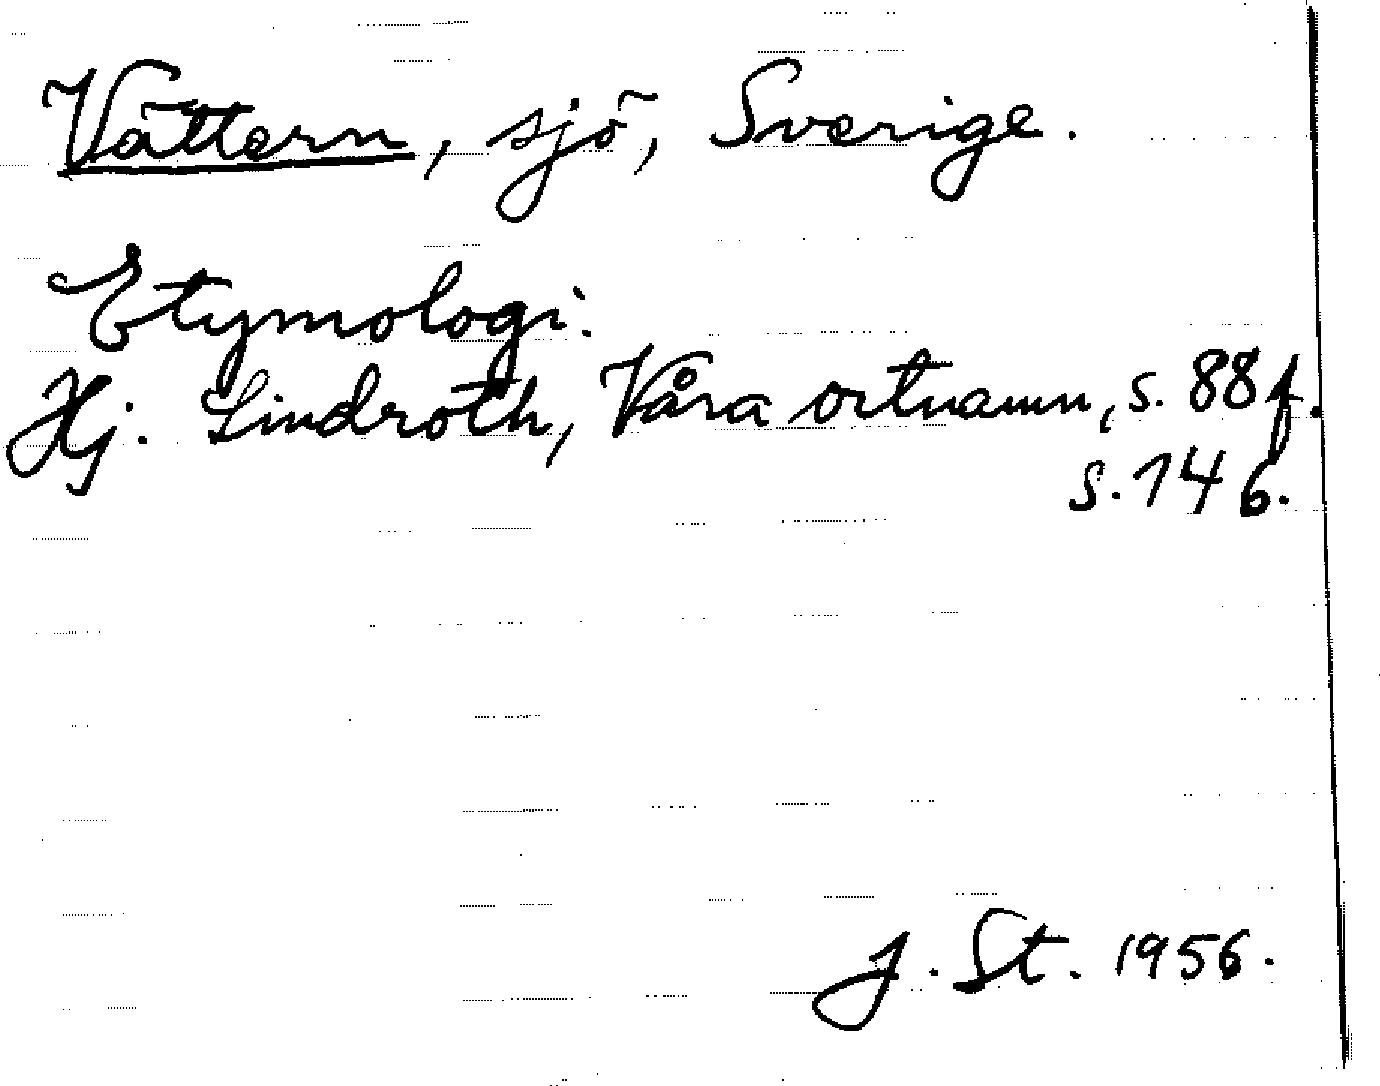 Vättern, sjö, Sverige.
Etymologi:
Hj. Lindroth, Våra ortnamn, s. 88 f.
s. 146.
J. St. 1956.